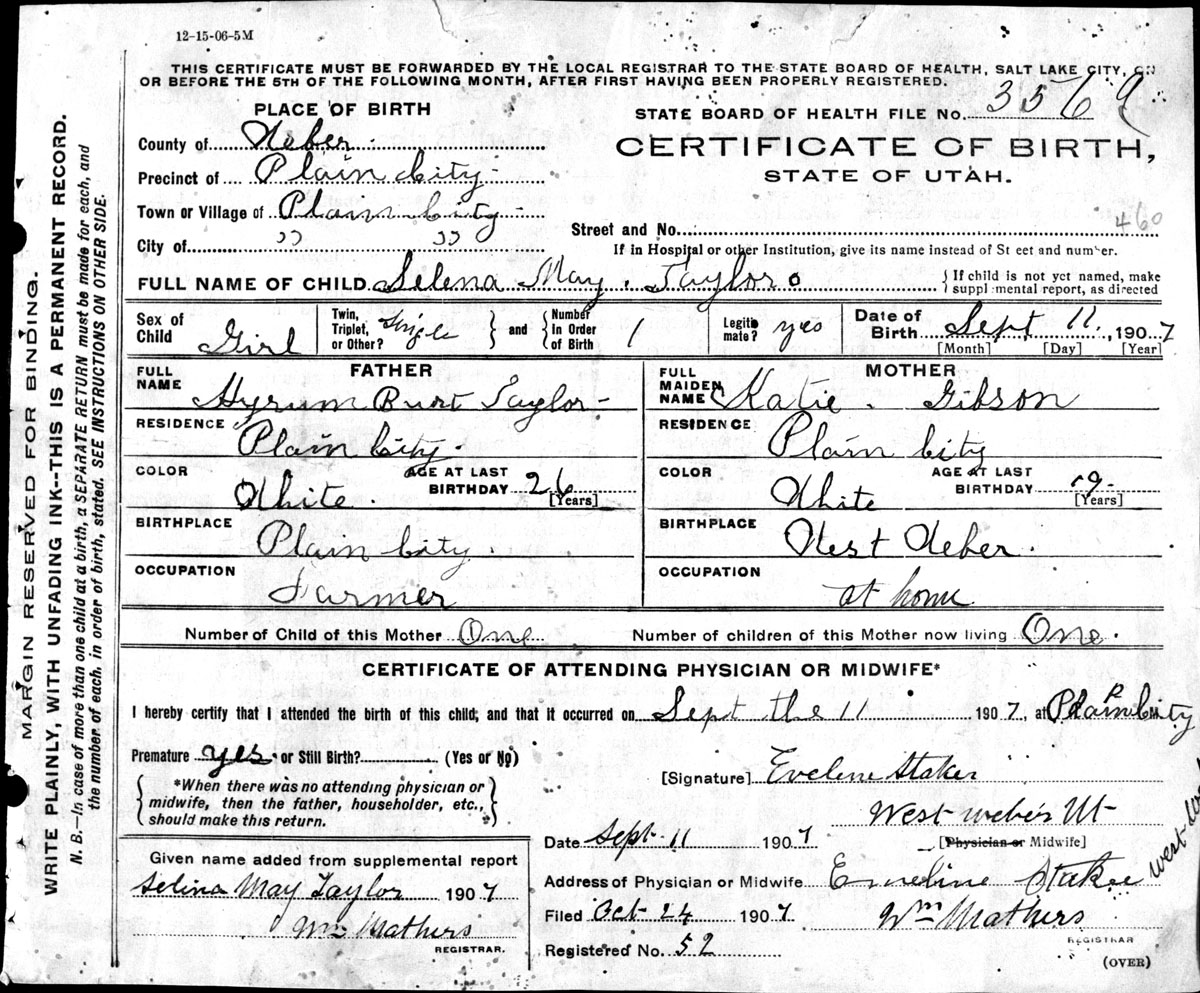 12-15-06-5M
THIS CERTIFICATE MUST BE FORWARDED BY THE LOCAL REGISTRAR TO THE STATE BOARD OF HEALTH, SALT LAKE CITY, ON
OR BEFORE THE 5TH OF THE FOLLOWING MONTH, AFTER FIRST HAVING BEEN PROPERLY REGISTERED.
PLACE OF BIRTH
County of Weber
Precinct of Plain City
Town or Village of Plain City
City of " "
STATE BOARD OF HEALTH FILE No. 3569
CERTIFICATE OF BIRTH,
STATE OF UTAH.
460
Street and No.
If in Hospital or other Institution, give its name instead of St eet and number.
FULL NAME OF CHILD Selena May Taylor
If child is not yet named, make
suppl mental report, as directed
Sex of Child Girl
Twin, Triplet, or Other? Single
and Number In Order of Birth 1
Legiti mate? yes
Date of Birth Sept 11, 1907
[Month] [Day] [Year]
FATHER
FULL NAME Hyrum Burt Taylor
RESIDENCE Plain City
COLOR White AGE AT LAST BIRTHDAY 26 [Years]
BIRTHPLACE Plain City
OCCUPATION Farmer
MOTHER
FULL MAIDEN NAME Katie Gibson
RESIDENCE Plain City
COLOR White AGE AT LAST BIRTHDAY 19 [Years]
BIRTHPLACE West Weber
OCCUPATION at home
Number of Child of this Mother One Number of children of this Mother now living One
CERTIFICATE OF ATTENDING PHYSICIAN OR MIDWIFE*
I hereby certify that I attended the birth of this child, and that it occurred on Sept the 11 1907, at Plain City
Premature yes or Still Birth? (Yes or No)
*When there was no attending physician or
midwife, then the father, householder, etc.,
should make this return.
[Signature] Eveline Staker
West weber Ut
[Physician or Midwife]
Date Sept 11 1907
Address of Physician or Midwife Emeline Staker west
Filed Oct 24 1907 Wm Mathers
REGISTRAR
Registered No. 52
(OVER)
Given name added from supplemental report
Selina May Taylor 1907
Wm Mathers
REGISTRAR.
MARGIN RESERVED FOR BINDING.
WRITE PLAINLY, WITH UNFADING INK--THIS IS A PERMANENT RECORD.
N. B.—In case of more than one child at a birth, a SEPARATE RETURN must be made for each, and
the number of each, in order of birth, stated. SEE INSTRUCTIONS ON OTHER SIDE.